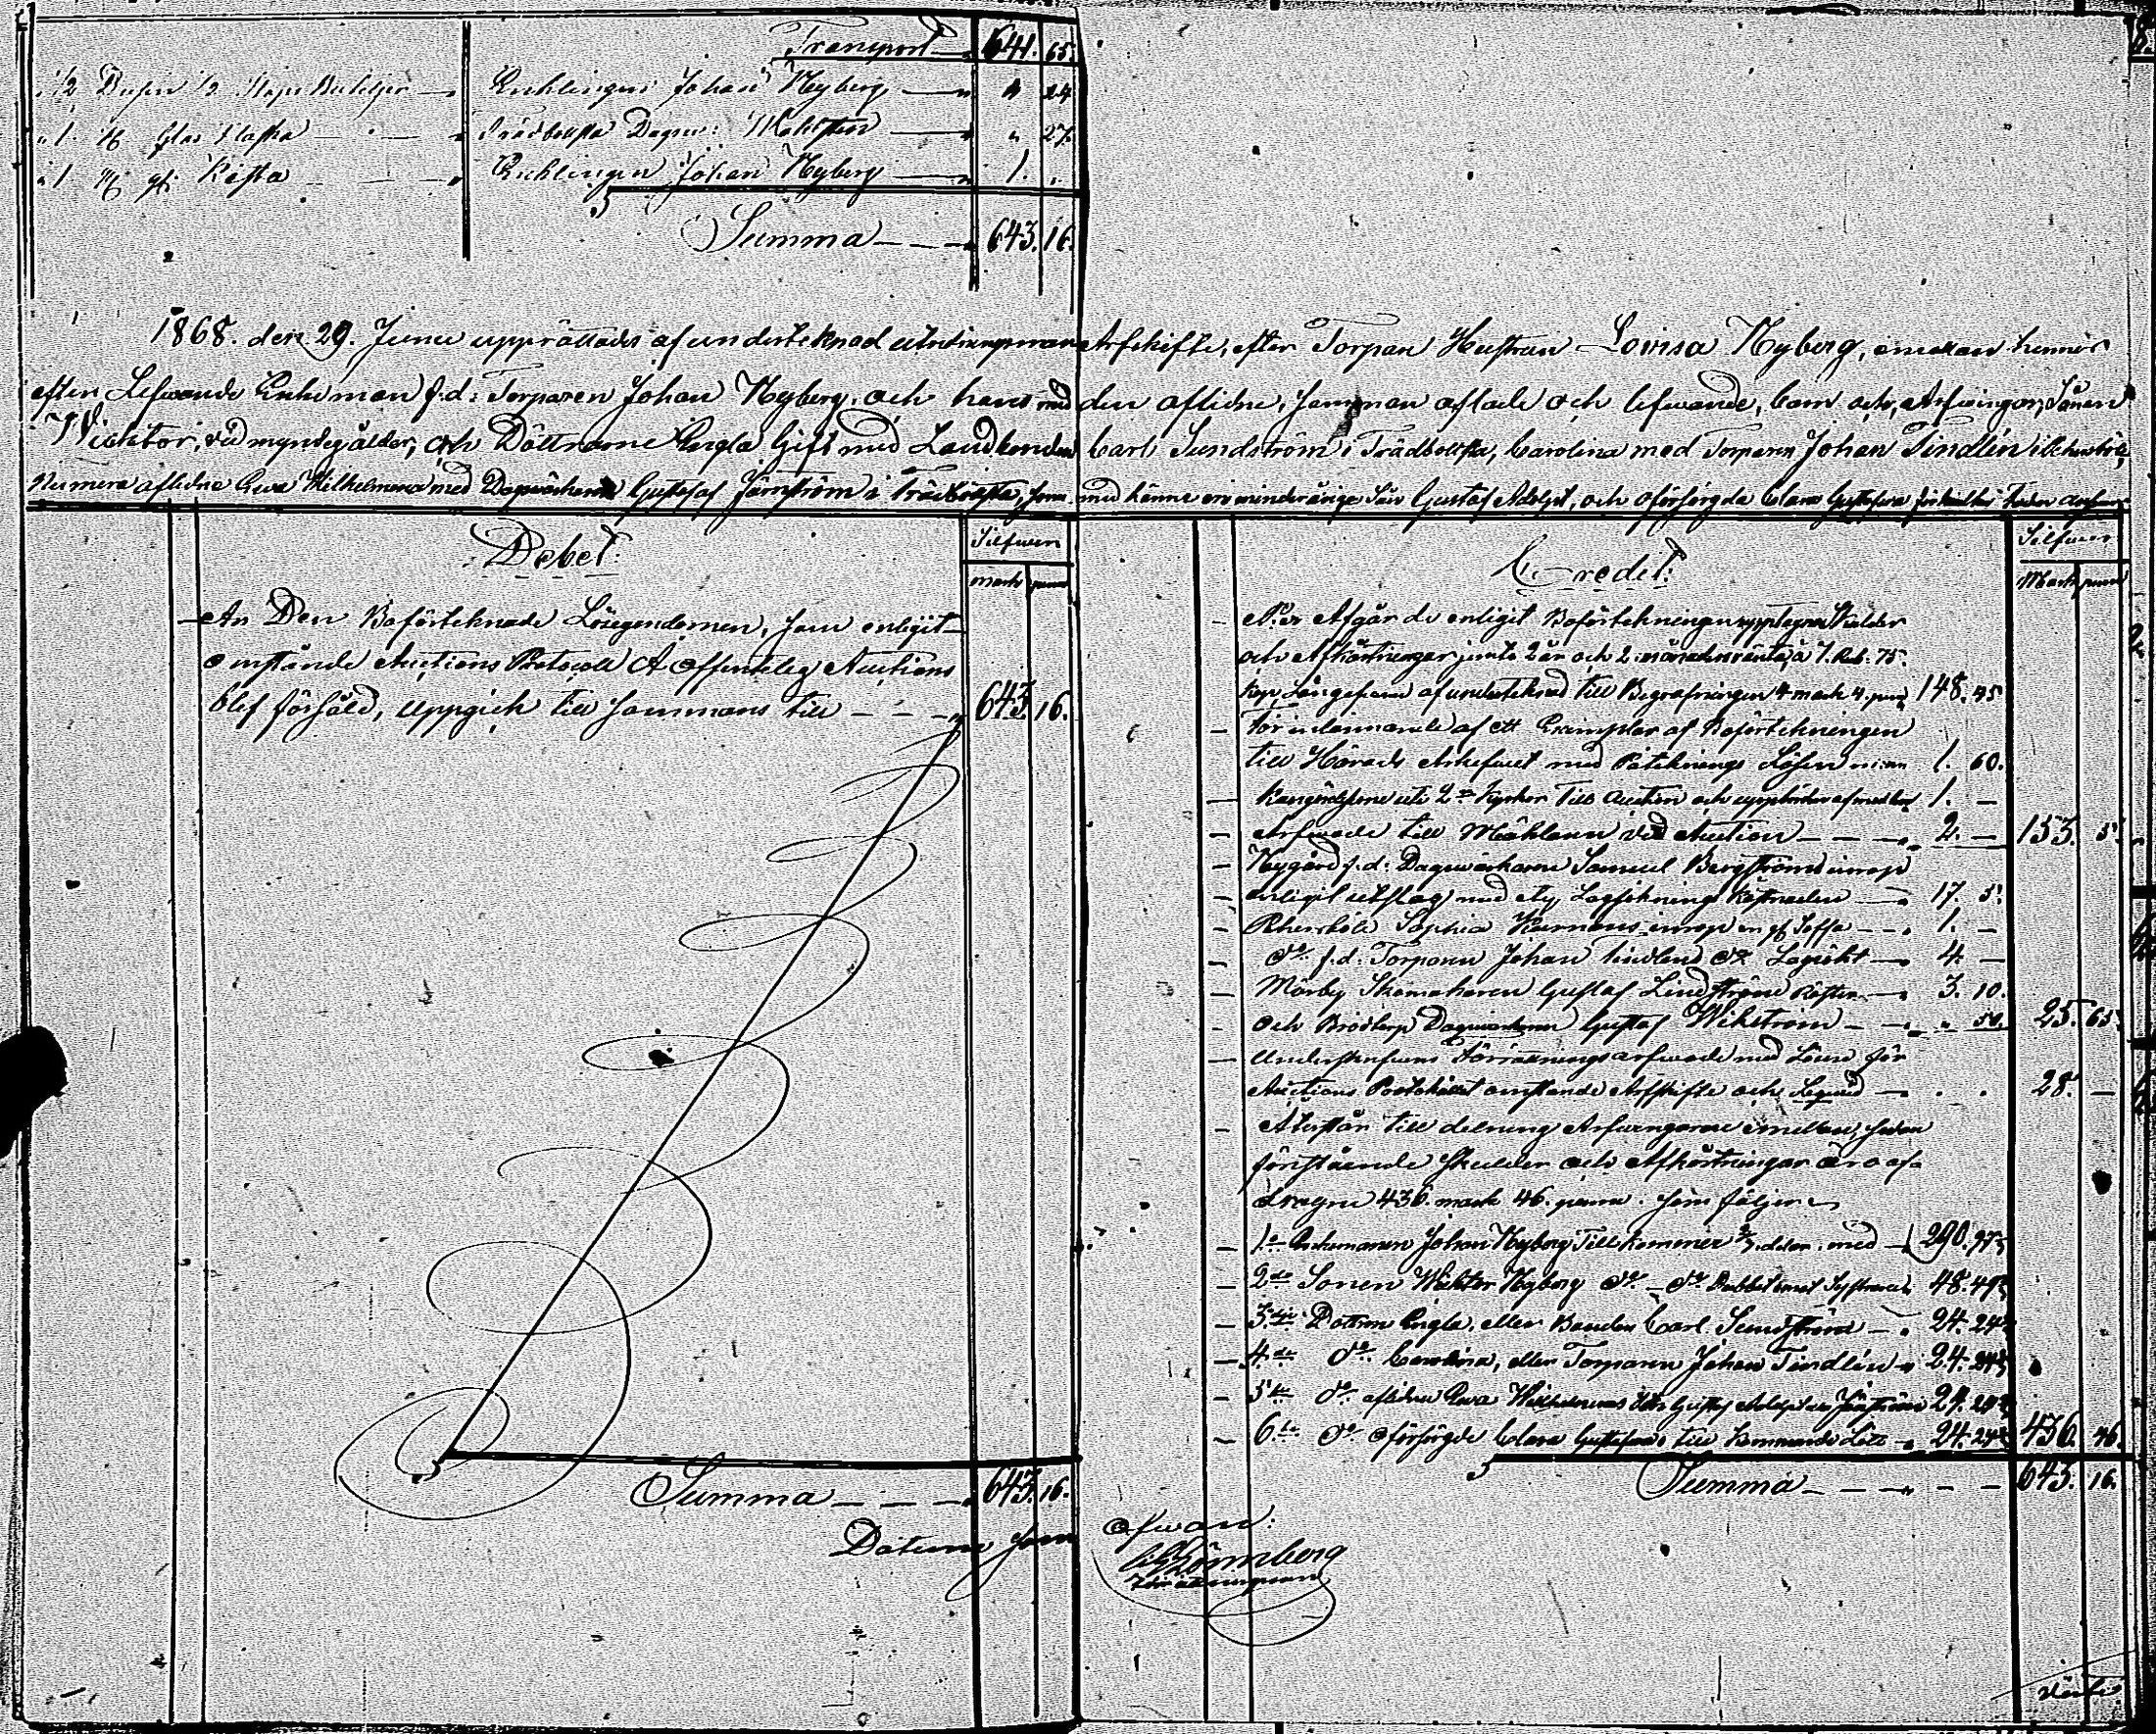 Transport 641. 65.
1/2 Dusin 1/2 Stops Buteljer Enklingen Johan Nyberg " 24
" 1. st Glas Flaska Trädbollsta Dagsv: " 27.
" 1 st gl: Kista Enklingen Johan Nyberg 1. "
Summa 643. 16.
1868. den 29. Junii upprättades af undertecknad utredningsman Arfskifte, efter Torpare Hustrun Lovisa Nyberg, emellan hennes
efter Lefwande Enkeman f.d: Torparen Johan Nyberg, och hans med den aflidne, samman aflade och lefwande, barn och Arfwingar, Sönen
Wicktor, vid myndig ålder, och Döttrarne Engla Gift med Landbonden Carl Sundström i Trädbollsta, Carolina med Torparen Johan Tindlén i
Numera aflidne Ewa Wilhelmina med Dagsverkaren Gustaf Järnström i Trädbollsta, som med henne en minderårige Sön Gustaf Adolf, och oförsörgda Clara Gustafwa
Debet: Silfwer
mark penni
An Den Boförteknade Lösegendomen, som enligit
omstånde Auctions Protocoll A Offentelig Auctions
blef försåld, uppgick till sammans till 643 16.
Summa 643. 16.
Datum som
Credit: Silfwer
Mark penni
Per Afgår de enligit Boförtekningen upptagna Skulder
och Afkortningar jemte 2 år och 2 månaders ränta, a 7. Rub. 75.
kop. af undertecknad till Begrafningen 4 mark 4. penni 148. 45
För inlemnande af ett Exemplar af Boförtekningen
till Härads Arkefwet med Påteknings Lösen 1. 60.
Kungörelserne uti 2ne Kyrkor Till Auction och 1. —
Arfwode till Mäklaren vid Auction 2. — 153. 5.
Nygård f.d: Dagswerkaren Samuel Bergström
enligit utslag med Lagsöknings Kostnaden 17. 5.
Sophia 1. —
do f.d: Torparen Johan Tindlén do 4. —
Mörby Skomakaren Gustaf Lindström Rästen 3. 10.
och Brödtorp Dagswerkaren Gustaf Wikström " 50. 25. 65.
Underskrefwens Förrättnings arfwode med Lösen för
Auctions Protokollet omstånde Arfskifte och 28. —
Återstår till delning Arfwingarne emellan, sedan
förestående Skulder och Afkortningar äro af
dragne 436. mark 46. penni. som följer
1o Enkemannen Johan Nyberg Tillkommer 2/3. delar. med 290. 97
2do Sonen Wicktor Nyberg do do Dubbelt emot Systrarne 48. 49
3tie Dottren Engla, eller Bonden Carl Sundström 24. 24
4de do Carolina, eller Torparen Johan Tindlén 24. 24
5te do aflidne Ewa Wilhelminas Gustaf Adolf Järnström 24. 24
6te do oförsörgde Clara Gustafwas till kommande Lott 24. 24 436. 46
Summa 643. 16.
Ofwan.